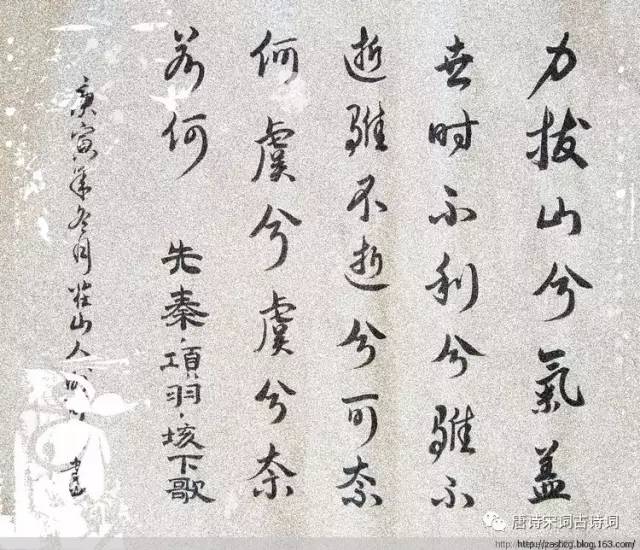 力拔山兮氣蓋
世时不利兮騅不
逝騅不逝兮可奈
何虞兮虞兮奈
若何
先秦·項羽·垓下歌
庚寅年冬月山人書
唐诗宋词古诗词